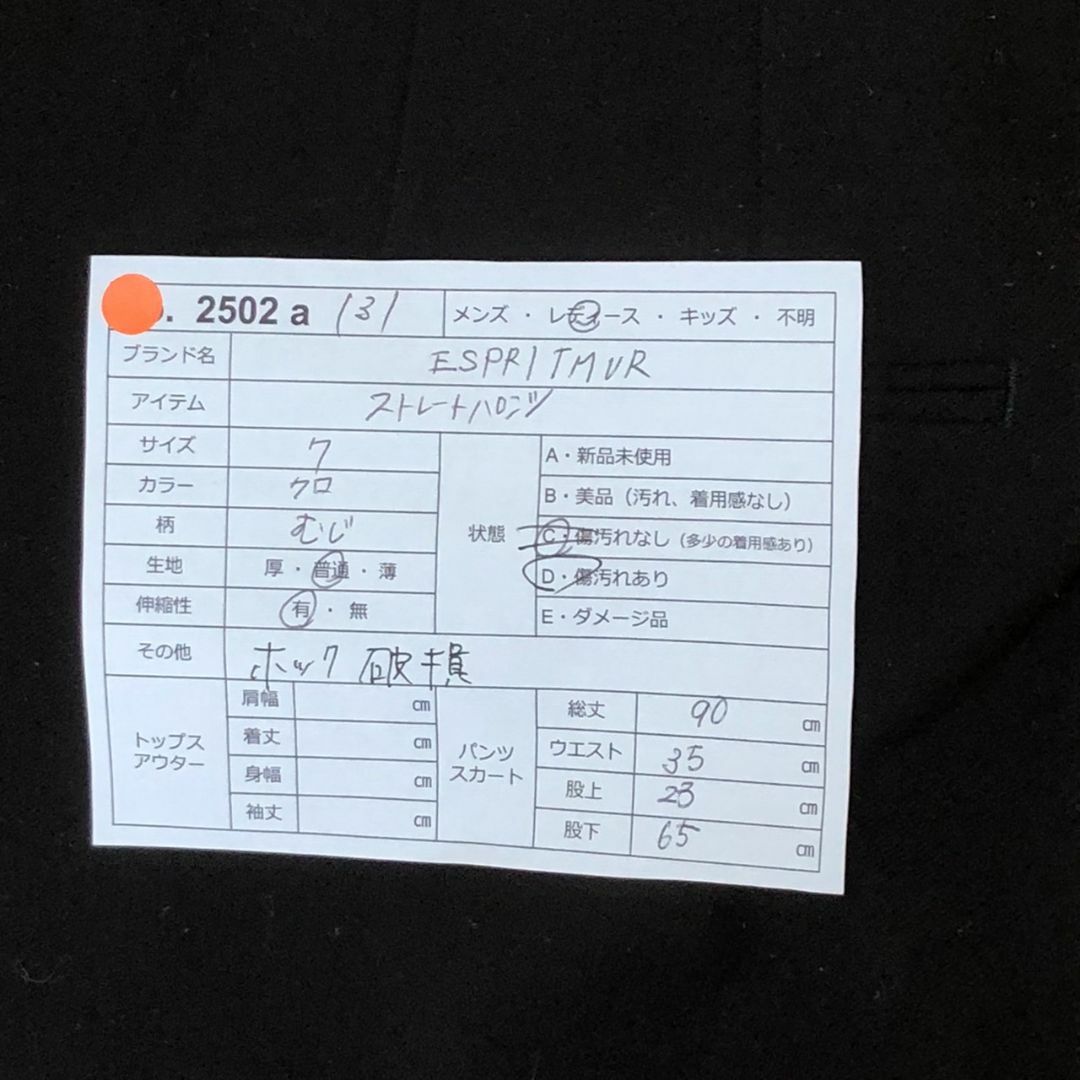 . 2502 a 131 メンズ ・ レディース ・ キッズ ・ 不明
ブランド名 ESPRITMUR
アイテム ストレートパンツ
サイズ 7
カラー クロ
柄 むじ
生地 厚・普通・薄
伸縮性 有・無
状態
A・新品未使用
B・美品（汚れ、着用感なし）
C・傷汚れなし（多少の着用感あり）
D・傷汚れあり
E・ダメージ品
その他 ホック破損
トップス
アウター
肩幅 cm
着丈 cm
身幅 cm
袖丈 cm
パンツ
スカート
総丈 90 cm
ウエスト 35 cm
股上 23 cm
股下 65 cm